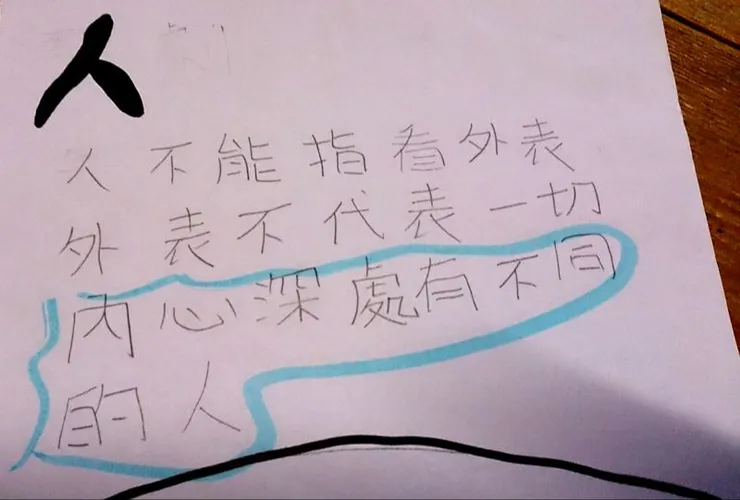 人
人不能指看外表
外表不代表一切
內心深處有不同
的人